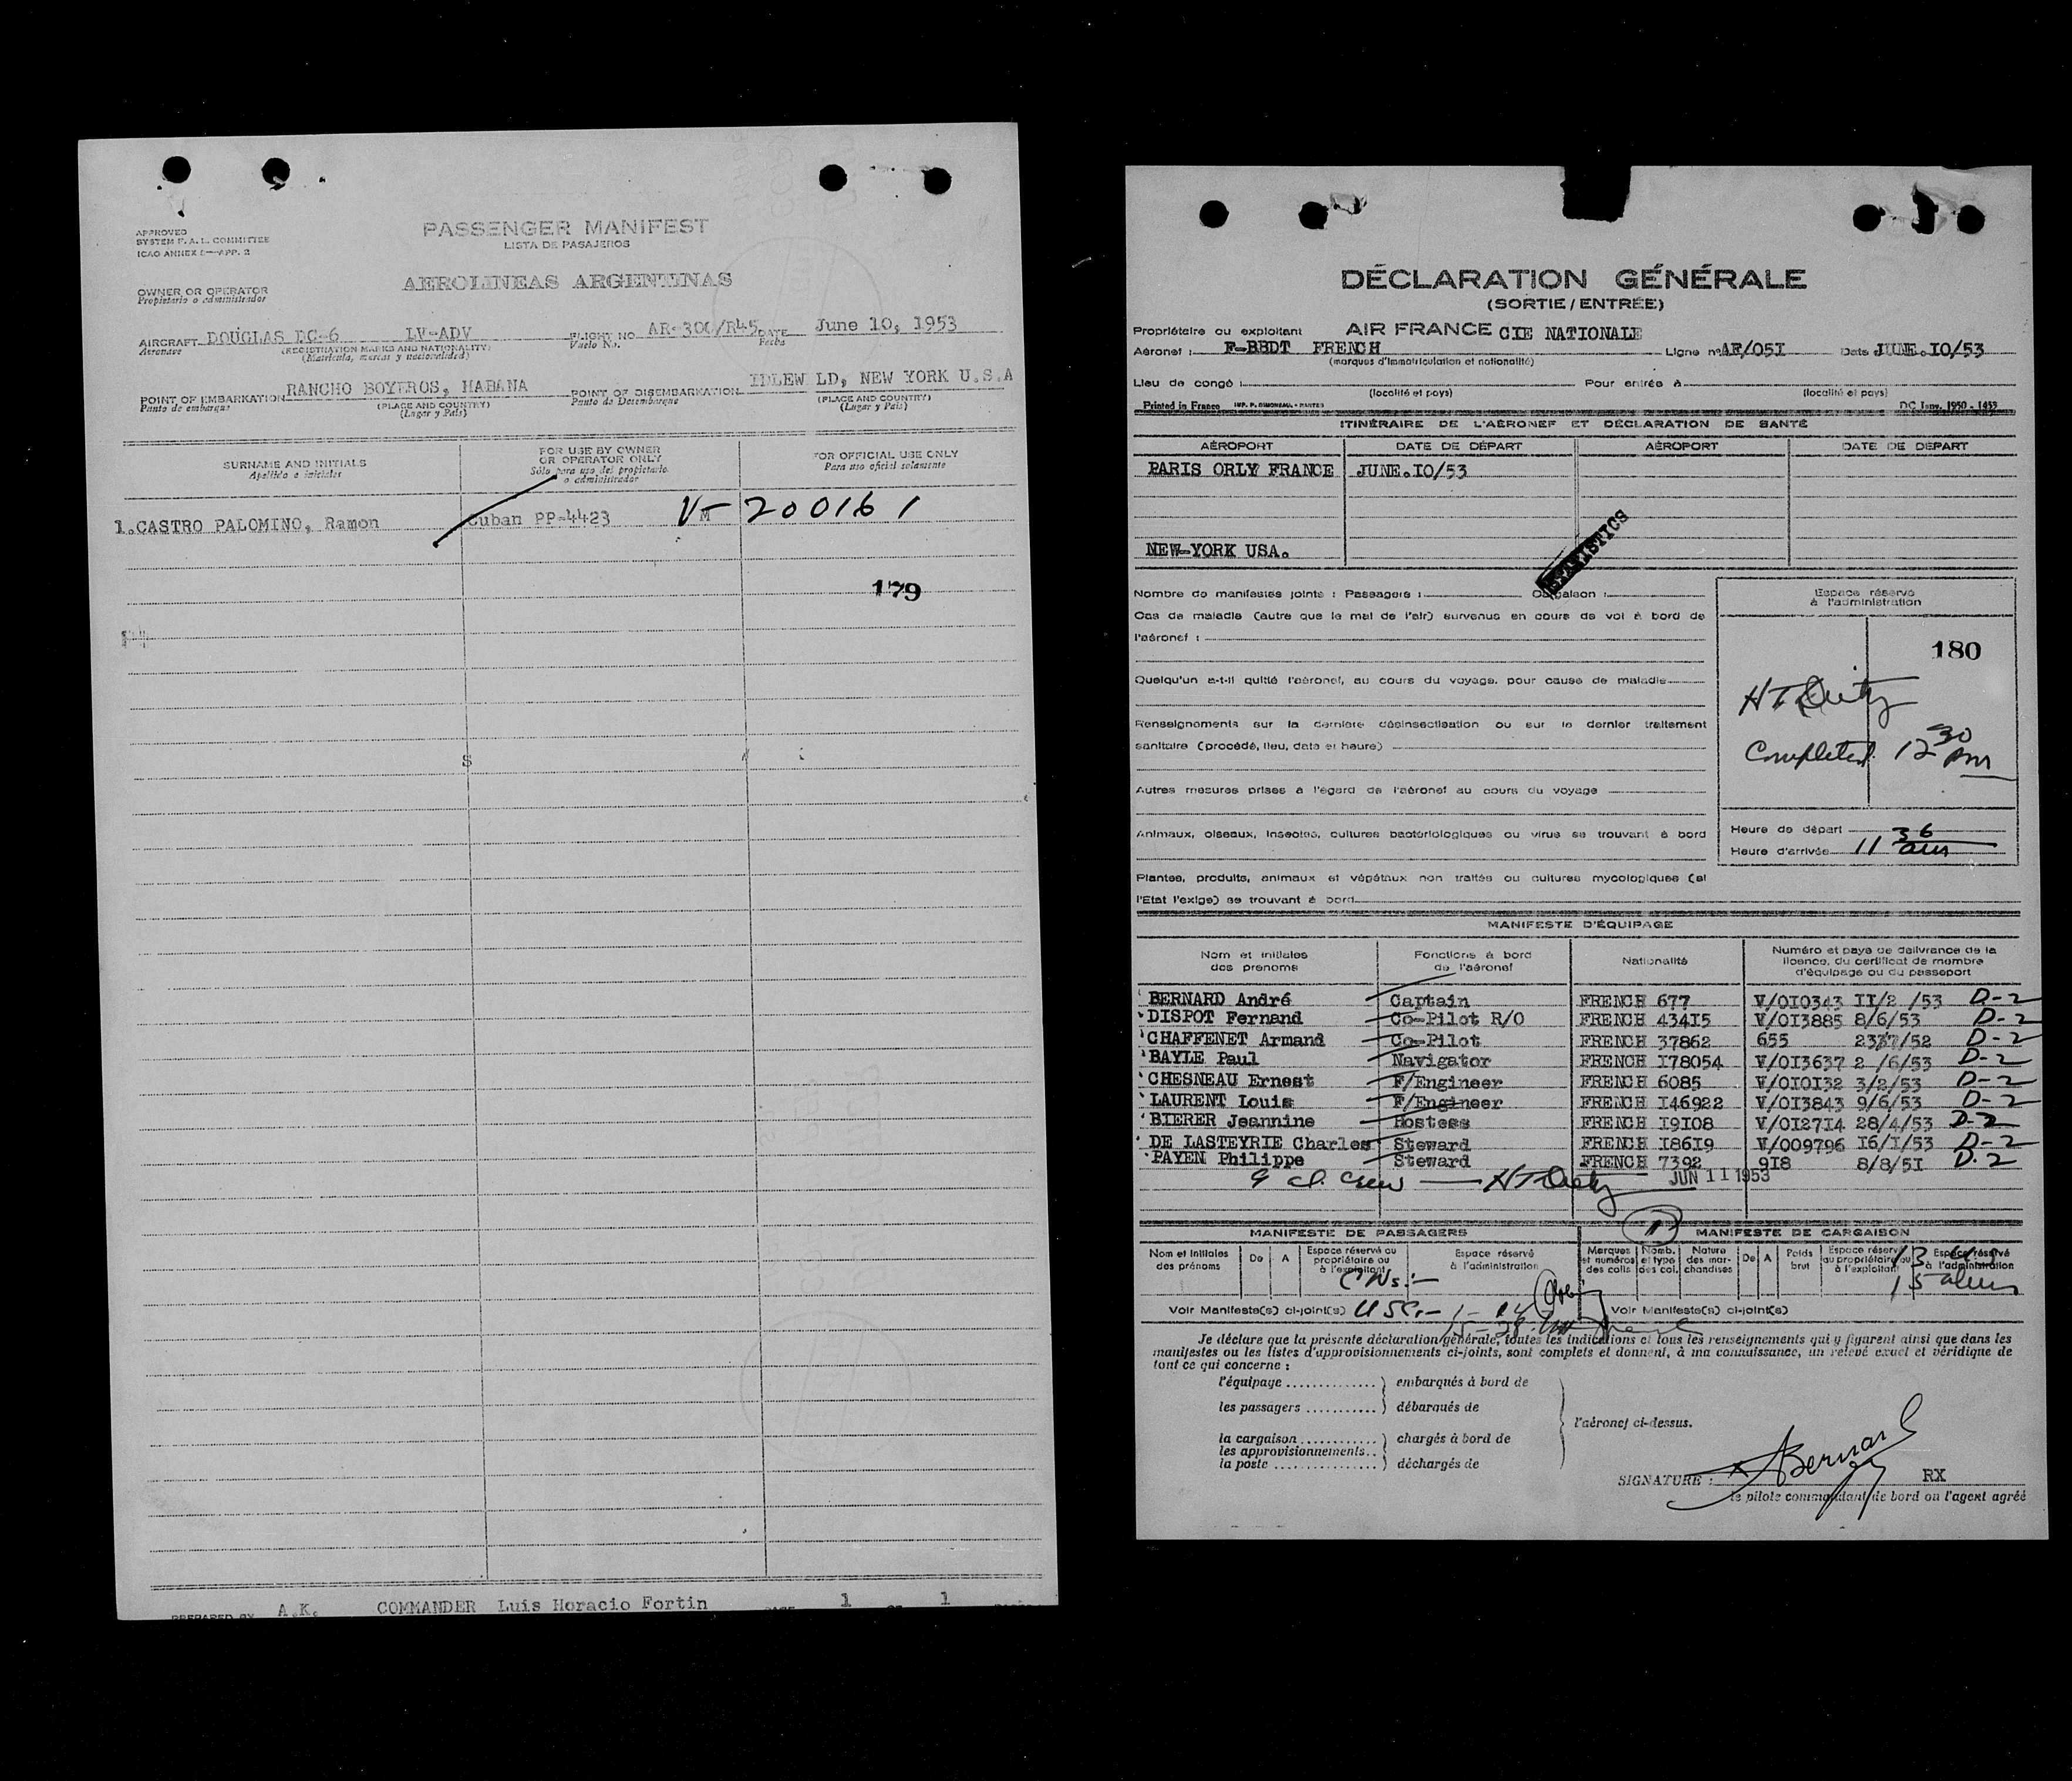 APPROVED
SYSTEM F. A. L. COMMITTEE
ICAO ANNEX 9—APP. 2
PASSENGER MANIFEST
LISTA DE PASAJEROS
AEROLINEAS ARGENTINAS
OWNER OR OPERATOR
Propietario o administrador
AIRCRAFT DOUGLAS DC-6 LV-ADV FLIGHT NO. AR-300/R45 DATE June 10, 1953
Aeronave (REGISTRATION MARKS AND NATIONALITY) Vuelo No. Fecha
(Matrícula, marcas y nacionalidad)
POINT OF EMBARKATION RANCHO BOYEROS, HABANA POINT OF DISEMBARKATION IDLEWILD, NEW YORK U.S.A
Punto de embarque (PLACE AND COUNTRY) Punto de Desembarque (PLACE AND COUNTRY)
(Lugar y País) (Lugar y País)
SURNAME AND INITIALS FOR USE BY OWNER OR OPERATOR ONLY FOR OFFICIAL USE ONLY
Apellido e iniciales Sólo para uso del propietario o administrador Para uso oficial solamente
1.CASTRO PALOMINO, Ramon Cuban PP-4423 M V-200161
179
S
PREPARED BY A.K. COMMANDER Luis Horacio Fortin PAGE 1 OF 1
DÉCLARATION GÉNÉRALE
(SORTIE / ENTRÉE)
Propriétaire ou exploitant AIR FRANCE CIE NATIONALE
Aéronef : F-BBDT FRENCH Ligne n° AF/05I Date JUNE.IO/53
(marques d'immatriculation et nationalité)
Lieu de congé : Pour entrée à
(localité et pays) (localité et pays)
Printed in France IMP. P. DIMONEAU - NANTES DC Janv. 1950 - 1455
ITINÉRAIRE DE L'AÉRONEF ET DÉCLARATION DE SANTÉ
AÉROPORT DATE DE DÉPART AÉROPORT DATE DE DÉPART
PARIS ORLY FRANCE JUNE.IO/53
STATISTICS
NEW-YORK USA.
Nombre de manifestes joints : Passagers : Cargaison :
Cas de maladie (autre que le mal de l'air) survenus en cours de vol à bord de
l'aéronef :
Quelqu'un a-t-il quitté l'aéronef, au cours du voyage, pour cause de maladie
Renseignements sur la dernière désinsectisation ou sur le dernier traitement
sanitaire (procédé, lieu, date et heure)
Autres mesures prises à l'égard de l'aéronef au cours du voyage
Animaux, oiseaux, insectes, cultures bactériologiques ou virus se trouvant à bord
Plantes, produits, animaux et végétaux non traités ou cultures mycologiques (si
l'Etat l'exige) se trouvant à bord
Espace réservé
à l'administration
180
Completed 12 30 pm
Heure de départ
Heure d'arrivée 11 36 am
MANIFESTE D'ÉQUIPAGE
Nom et initiales des prenoms Fonctions à bord de l'aéronef Nationalité Numéro et pays de délivrance de la licence, du certificat de membre d'équipage ou du passeport
BERNARD André Captain FRENCH 677 V/OI0343 II/2 /53 D-2
DISPOT Fernand Co-Pilot R/O FRENCH 434I5 V/OI3885 8/6/53 D-2
CHAFFENET Armand Co-Pilot FRENCH 37862 655 23/7/52 D-2
BAYLE Paul Navigator FRENCH I78054 V/OI3637 2 /6/53 D-2
CHESNEAU Ernest F/Engineer FRENCH 6085 V/OIOI32 3/2/53 D-2
LAURENT Louis F/Engineer FRENCH I46922 V/OI3843 9/6/53 D-2
BIERER Jeannine Hostess FRENCH I9I08 V/OI27I4 28/4/53 D-2
DE LASTEYRIE Charles Steward FRENCH I86I9 V/009796 I6/I/53 D-2
PAYEN Philippe Steward FRENCH 7392 9I8 8/8/5I D.2
JUN 11 1953
MANIFESTE DE PASSAGERS MANIFESTE DE CARGAISON
Nom et initiales des prénoms De A Espace réservé au propriétaire ou à l'exploitant Espace réservé à l'administration Marques et numéros des colis Nomb. et type des col. Nature des marchandises De A Poids brut Espace réservé au propriétaire ou à l'exploitant Espace réservé à l'administration
Voir Manifeste(s) ci-joint(s) Voir Manifeste(s) ci-joint(s)
Je déclare que la présente déclaration générale, toutes les indications et tous les renseignements qui y figurent ainsi que dans les
manifestes ou les listes d'approvisionnements ci-joints, sont complets et donnent, à ma connaissance, un relevé exact et véridique de
tout ce qui concerne :
l'équipage .............. } embarqués à bord de
les passagers ........... } débarqués de
l'aéronef ci-dessus.
la cargaison ............ } chargés à bord de
les approvisionnements..
la poste ................ } déchargés de
SIGNATURE : ABernard RX
le pilote commandant de bord ou l'agent agréé